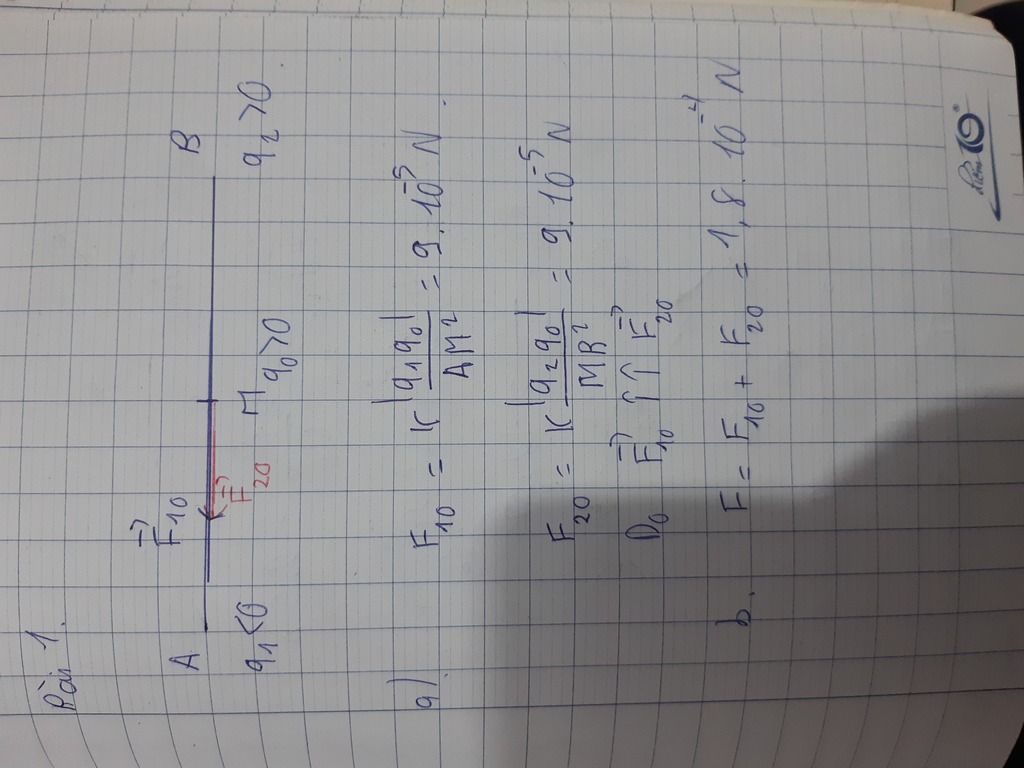 Bài 1.
F⃗₁₀
A M B
F⃗₂₀
q₁<0 q₀>0 q₂>0
a) F₁₀ = K |q₁q₀| / AM² = 9.10⁻⁵ N.
F₂₀ = K |q₂q₀| / MB² = 9.10⁻⁵ N
Do F⃗₁₀ ↑↑ F⃗₂₀
b. F = F₁₀ + F₂₀ = 1,8.10⁻⁴ N
điểm 10